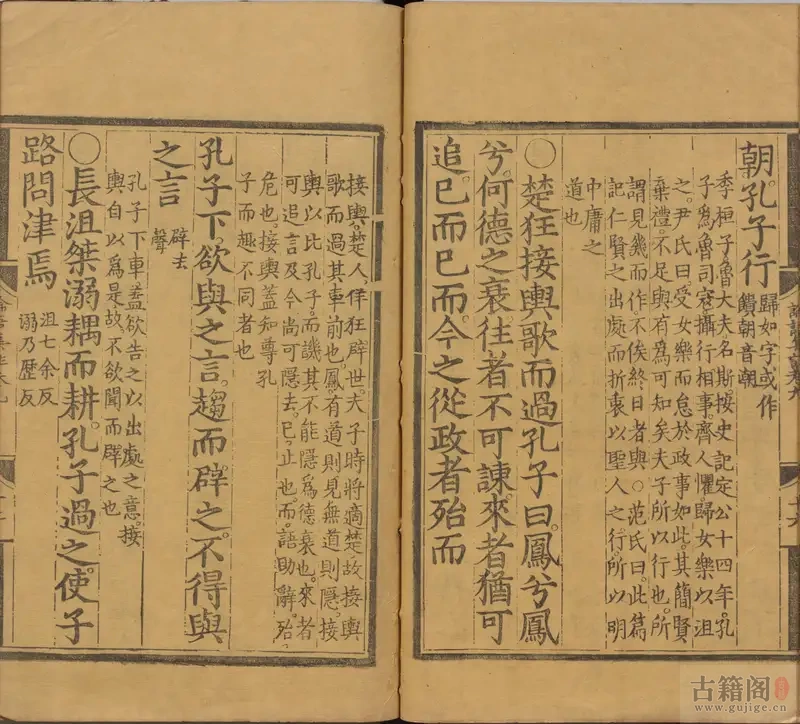 朝。孔子行
歸如字或作
饋朝音朝
季桓子魯大夫名斯按史記定公十四年。孔
子爲魯司寇攝行相事。齊人懼。歸女樂以沮
之。尹氏曰。受女樂而怠於政事如此。其簡賢
棄禮。不足與有爲可知矣夫子所以行也。所
謂見幾而作。不俟終日者與○范氏曰。此篇
記仁賢之出處而折衷以聖人之行。所以明
中庸之
道也
○楚狂接輿歌而過孔子曰。鳳兮鳳
兮。何德之衰。往者不可諫。來者猶可
追。已而已而。今之從政者殆而
接輿。楚人。佯狂辟世。夫子時將適楚故接輿
歌而過其車前也。鳳有道則見無道則隱。接
輿以比孔子。而譏其不能隱爲德衰也。來者
可追言及今尚可隱去。已。止也。而。語助辭。殆。
危也。接輿蓋知尊孔
子而趣不同者也
孔子下。欲與之言。趨而辟之。不得與
之言
辟去
聲
孔子下車蓋欲告之以出處之意。接
輿自以爲是故。不欲聞而辟之也
○長沮桀溺耦而耕。孔子過之。使子
路問津焉
沮七余反
溺乃歷反
古籍阁
www.gujige.cn